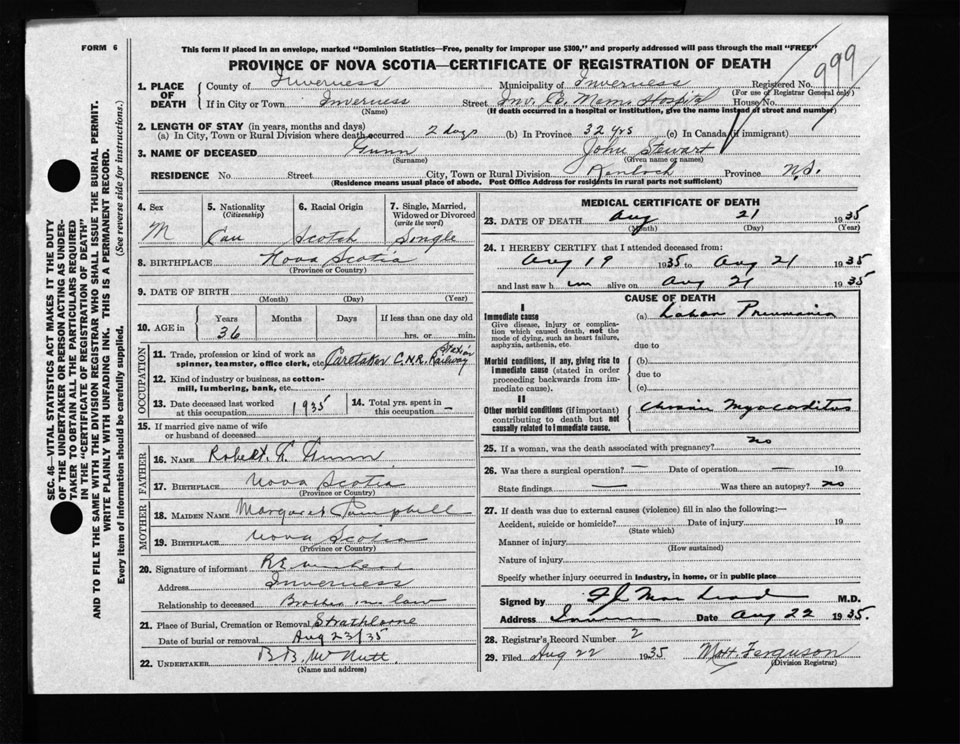 FORM 6
This form if placed in an envelope, marked "Dominion Statistics—Free, penalty for improper use $300," and properly addressed will pass through the mail "FREE"
PROVINCE OF NOVA SCOTIA—CERTIFICATE OF REGISTRATION OF DEATH
999
1. PLACE OF DEATH
County of Inverness Municipality of Inverness Registered No.
(For use of Registrar General only)
If in City or Town Inverness Street Inv. Co. Mem Hospital House No.
(Name) (If death occurred in a hospital or institution, give the name instead of street and number)
2. LENGTH OF STAY (in years, months and days)
(a) In City, Town or Rural Division where death occurred 2 days (b) In Province 32 yrs (c) In Canada (if immigrant)
3. NAME OF DECEASED Gunn John Stewart
(Surname) (Given name or names)
RESIDENCE No. Street City, Town or Rural Division Kenloch Province N.S.
(Residence means usual place of abode. Post Office Address for residents in rural parts not sufficient)
4. Sex 5. Nationality (Citizenship) 6. Racial Origin 7. Single, Married, Widowed or Divorced (write the word)
M Can Scotch Single
8. BIRTHPLACE Nova Scotia
(Province or Country)
9. DATE OF BIRTH
(Month) (Day) (Year)
10. AGE in Years Months Days If less than one day old
36 hrs. or min.
OCCUPATION
11. Trade, profession or kind of work as spinner, teamster, office clerk, etc. Caretaker C.N.R. Station Railway
12. Kind of industry or business, as cotton-mill, lumbering, bank, etc.
13. Date deceased last worked at this occupation 1935 14. Total yrs. spent in this occupation –
15. If married give name of wife or husband of deceased
FATHER
16. NAME Robert Gunn
17. BIRTHPLACE Nova Scotia
(Province or Country)
MOTHER
18. MAIDEN NAME Margaret Campbell
19. BIRTHPLACE Nova Scotia
(Province or Country)
20. Signature of informant
Address Inverness
Relationship to deceased Brother in law
21. Place of Burial, Cremation or Removal Strathlorne
Date of burial or removal Aug 23/35
22. UNDERTAKER B B McNutt
(Name and address)
MEDICAL CERTIFICATE OF DEATH
23. DATE OF DEATH Aug 21 1935
(Month) (Day) (Year)
24. I HEREBY CERTIFY that I attended deceased from:
Aug 19 1935 to Aug 21 1935
and last saw him alive on Aug 21 1935
CAUSE OF DEATH
I
Immediate cause (a) Lobar Pneumonia
Give disease, injury or complication which caused death, not the mode of dying, such as heart failure, asphyxia, asthenia, etc.
due to
Morbid conditions, if any, giving rise to immediate cause (stated in order proceeding backwards from immediate cause).
(b)
due to
(c)
II
Other morbid conditions (if important) contributing to death but not causally related to immediate cause.
Myocarditis
25. If a woman, was the death associated with pregnancy? no
26. Was there a surgical operation? — Date of operation — 19
State findings — Was there an autopsy? no
27. If death was due to external causes (violence) fill in also the following:—
Accident, suicide or homicide? Date of injury 19
(State which)
Manner of injury
(How sustained)
Nature of injury
Specify whether injury occurred in industry, in home, or in public place
Signed by M.D.
Address Date Aug 22 1935.
28. Registrar's Record Number 2
29. Filed Aug 22 1935 Ferguson
(Division Registrar)
SEC. 46—VITAL STATISTICS ACT MAKES IT THE DUTY
OF THE UNDERTAKER OR PERSON ACTING AS UNDER-
TAKER TO OBTAIN ALL THE PARTICULARS REQUIRED
IN THE "CERTIFICATE OF REGISTRATION OF DEATH"
AND TO FILE THE SAME WITH THE DIVISION REGISTRAR WHO SHALL ISSUE THE BURIAL PERMIT.
WRITE PLAINLY WITH UNFADING INK. THIS IS A PERMANENT RECORD.
Every item of information should be carefully supplied. (See reverse side for instructions.)